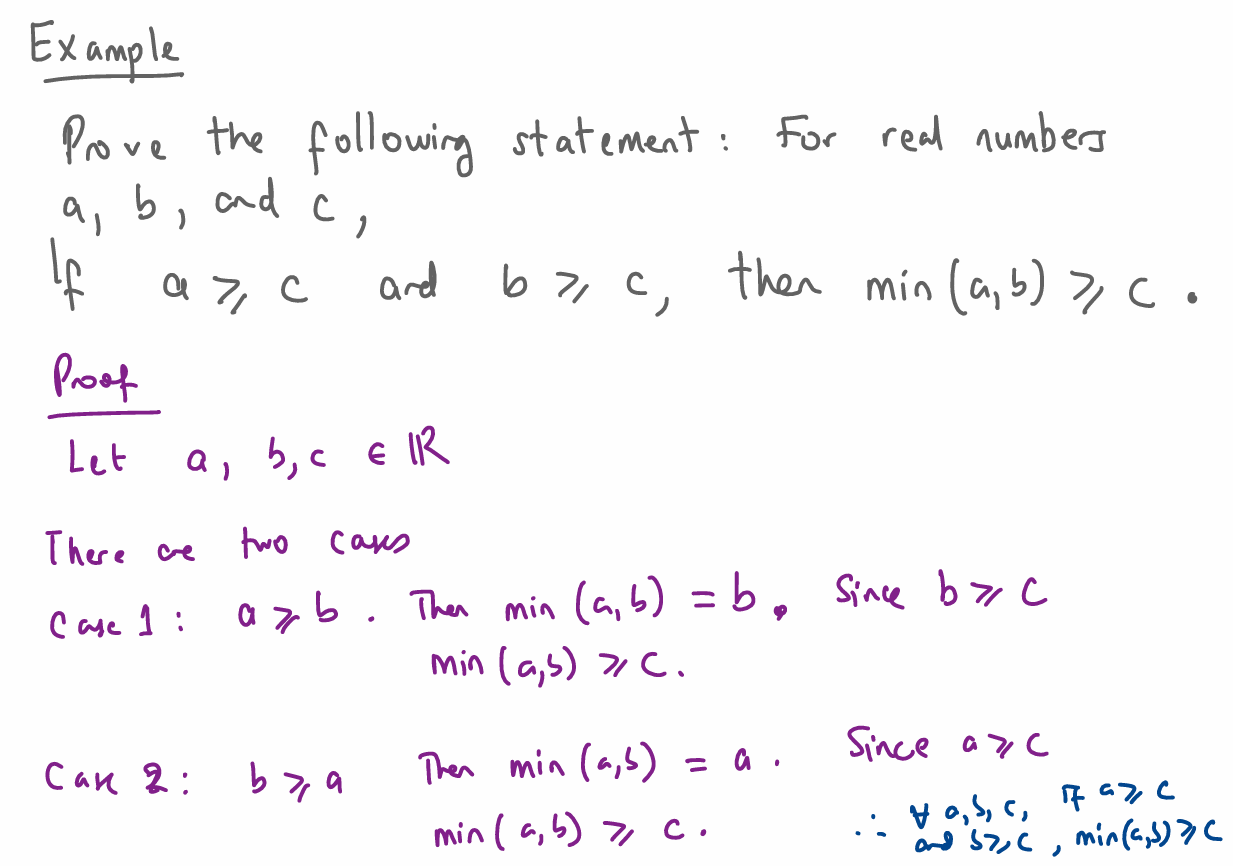 Example
Prove the following statement: For real numbers
a, b, and c,
If a ⩾ c and b ⩾ c, then min(a,b) ⩾ c.
Proof
Let a, b, c ∈ ℝ
There are two cases
Case 1: a ⩾ b. Then min(a,b) = b. Since b ⩾ c
min(a,b) ⩾ c.
Case 2: b ⩾ a Then min(a,b) = a. Since a ⩾ c
min(a,b) ⩾ c.
∴ ∀ a,b,c, If a ⩾ c
and b ⩾ c, min(a,b) ⩾ c